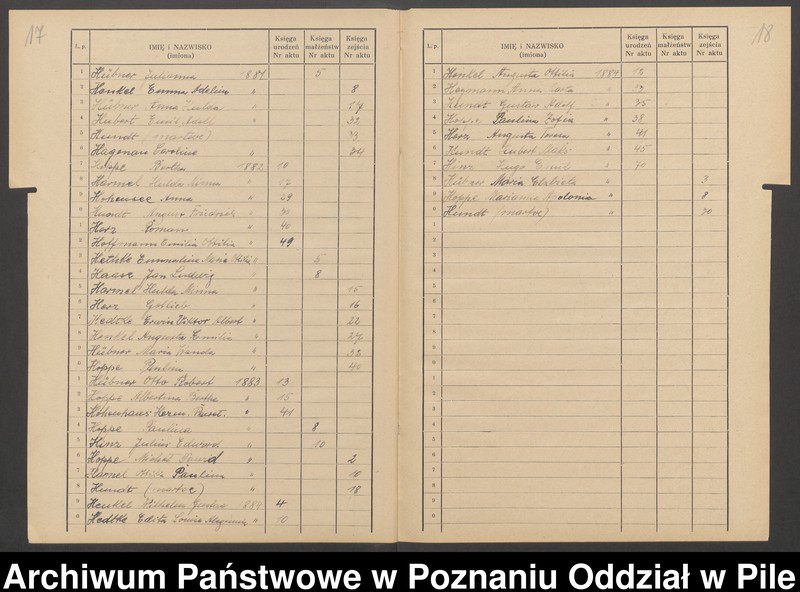 17
L. p. IMIĘ i NAZWISKO (imiona) Księga urodzeń Nr aktu Księga małżeństw Nr aktu Księga zejścia Nr aktu
1 Hübner Julianna 1881 5
2 Henkel Emma Adelina " 8
3 Hübner Anna Hulda 17
4 Hubert Emil Adolf " 32
5 Hundt (martwe) " 33
6 Hagenau Carolina " 34
7 Hoppe Bertha 1882 10
8 Harmel Hulda Minna " 17
9 Anna " 29
0 August "
1 Herz Roman " 40
2 Hoffmann Emilia Ottilia " 49
3 Hethke Ernestina Maria " 5
4 Haase Jan Ludwig " 8
5 Harmel Hulda Minna " 15
6 Herz Gottlieb " 16
7 Hedtke Erwin Viktor Albert " 22
8 Henkel Augusta Emilia " 27
9 Hübner Maria Wanda " 32
0 Hoppe Paulina " 40
1 Hübner Otto Robert 1883 13
2 Hoppe Albertina Bertha " 15
3 Hohenhaus Herm. " 41
4 Hoppe Paulina " 8
5 Hinz Julius Eduard " 10
6 Hoppe Michał " 2
7 Harmel Ottilia Paulina " 10
8 Hundt (martwe) " 18
9 Henkel Wilhelm Gustav 1884 4
0 Hedtke Edita Louise " 10
18
L. p. IMIĘ i NAZWISKO (imiona) Księga urodzeń Nr aktu Księga małżeństw Nr aktu Księga zejścia Nr aktu
1 Henkel Augusta Ottilia 1884 12
2 Heymann Anna "
3 Hundt Gustav Adolf " 35
4 Hoppe Paulina Zofia " 38
5 Herz Augusta " 41
6 Hundt Hubert " 45
7 Hinz Hugo Emil " 70
8 Hübner Maria Elżbieta " 3
9 Hoppe Marianna Apolonia " 8
0 Hundt (martwe) " 20
1
2
3
4
5
6
7
8
9
0
1
2
3
4
5
6
7
8
9
0
Archiwum Państwowe w Poznaniu Oddział w Pile